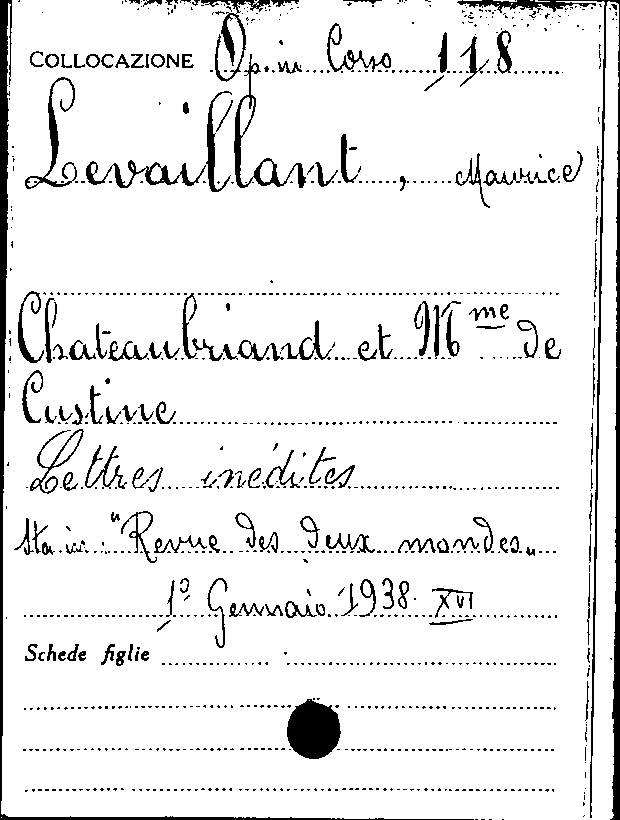 COLLOCAZIONE Op. in Corso 118
Levaillant, Maurice
Chateaubriand et Mme de
Custine
Lettres inédites
Sta in: "Revue des deux mondes„
1º Gennaio 1938 XVI
Schede figlie